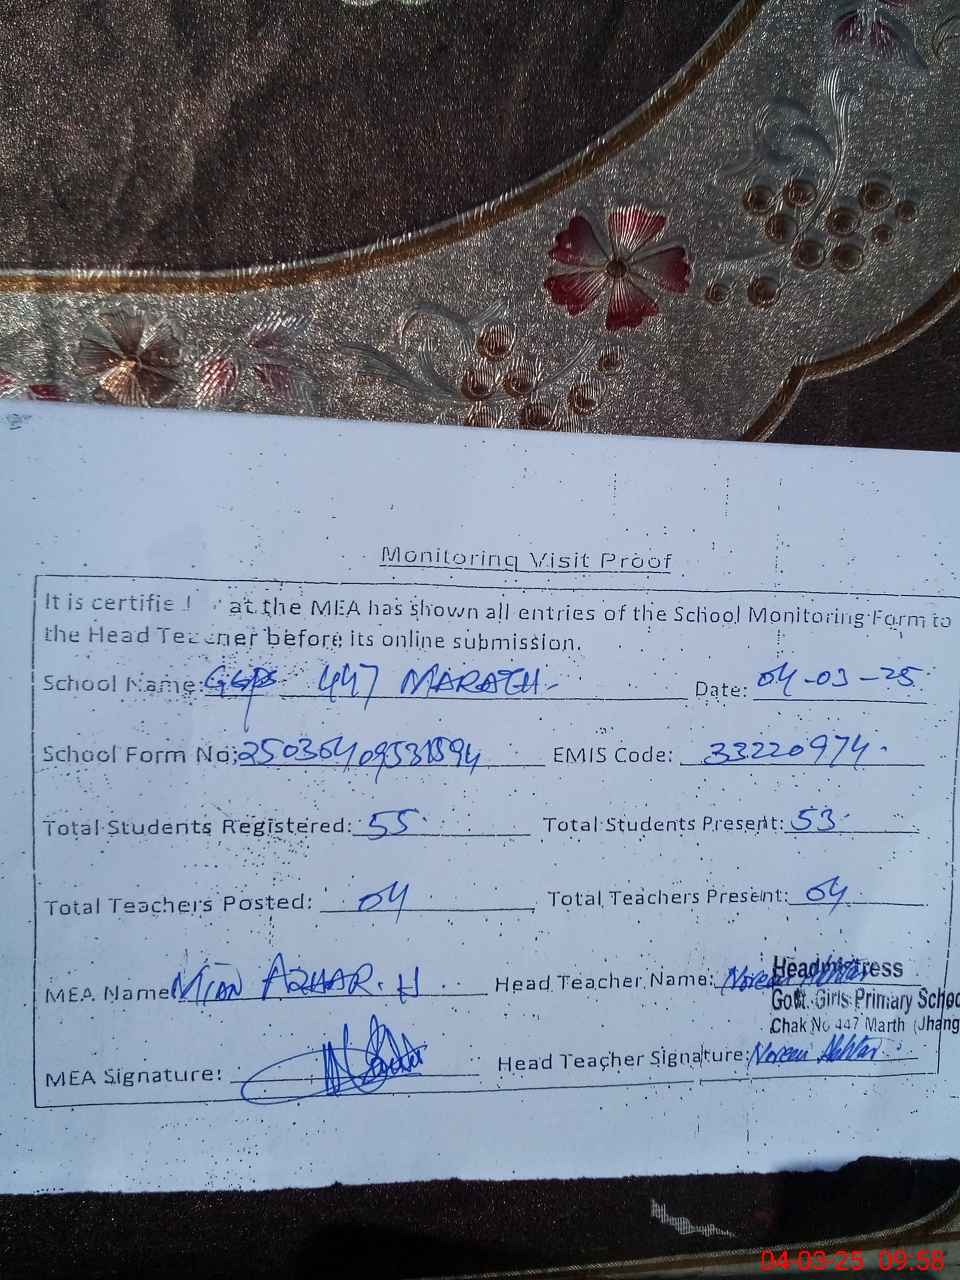 Monitoring Visit Proof
It is certifie at the MEA has shown all entries of the School Monitoring Form to
the Head Teacher before its online submission.
School Name: GGPS 447 MARATH Date: 04-03-25
School Form No: EMIS Code: 33220974
Total Students Registered: 55 Total Students Present: 53
Total Teachers Posted: 04 Total Teachers Present: 04
MEA Name: MIAN AZHAR. H Head Teacher Name: Noreen Akhtar
Headmistress
Govt. Girls Primary Schoo
Chak No 447 Marth (Jhang
MEA Signature: Head Teacher Signature: Noreen Akhtar
04-03-25 09:58